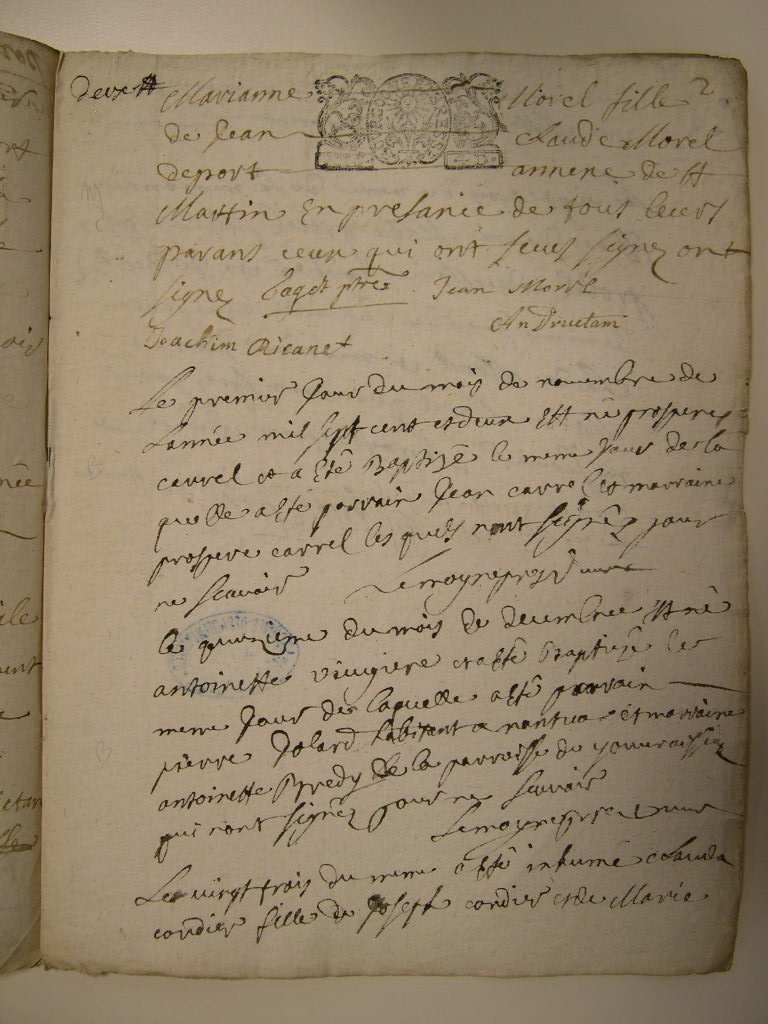 deux
Marianne Morel fille 2
de Jean Claude Morel
deport annene de St
Martin En presance de tous leurs
parans ceux qui ont sceus signez ont
signez ptre Jean Morel
Joachim Ricanet
Le premier Jour du mois de novembre de
Lannée mil sept cent et deux Est né prospere
carrel et a esté Baptizé le meme Jour de la
quelle a esté parrain Jean carrel et marraine
prospere carrel les quels nont signéz pour
ne scavoir Lemoyne
le quinzieme du mois de decembre Est né
antoinette et a esté Baptizé le
meme Jour de laquelle a esté parrain
pierre Jolard habitant a nantua et marraine
antoinette Bredy de la parroisse de
qui nont signéz pour ne scavoir
Lemoyne
Le vingt trois du meme a esté inhumé Clauda
cordier fille de Joseph cordier et de Marie